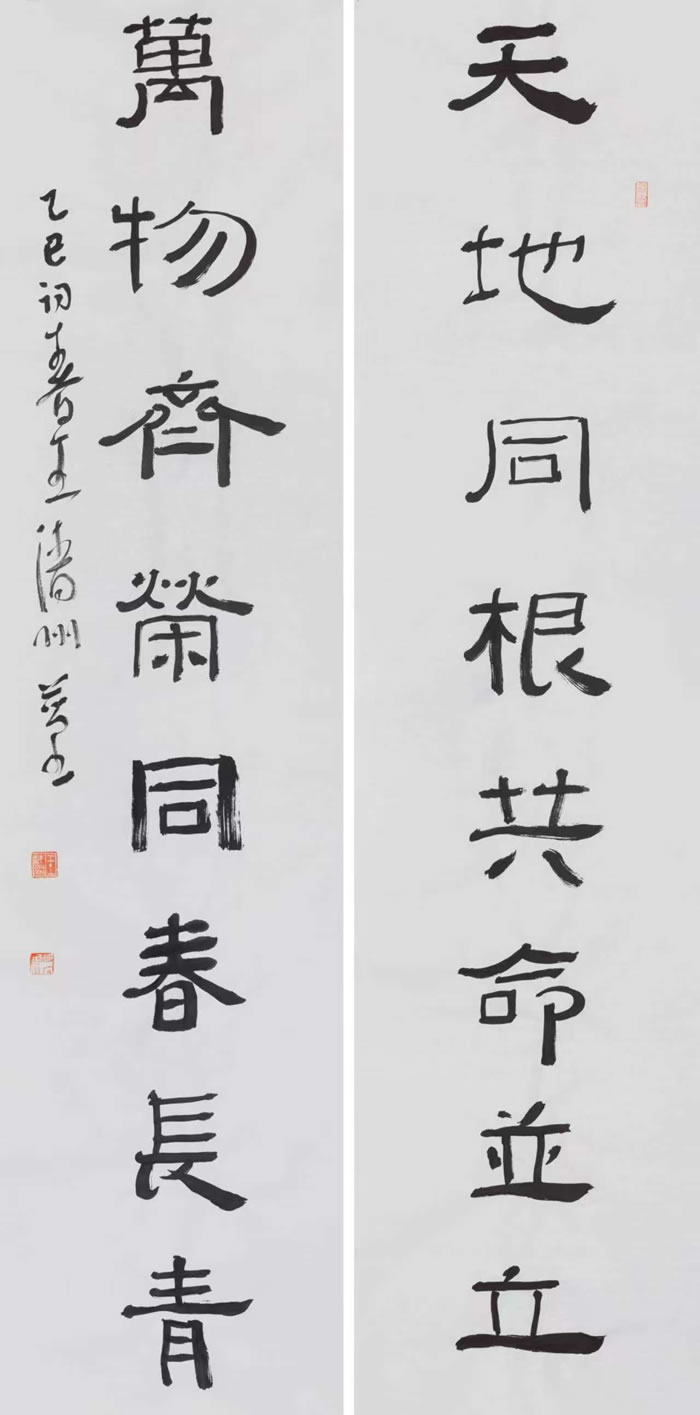 天地同根共命並立
萬物齊榮同春長青
乙巳初春